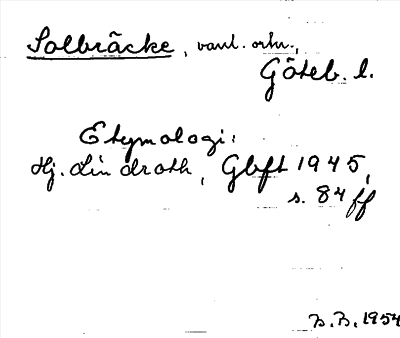 Solbräcke, vanl. ortn.,
Göteb. l.
Etymologi:
Hj. Lindroth, Gbft 1945,
s. 84 ff
B.B. 1954